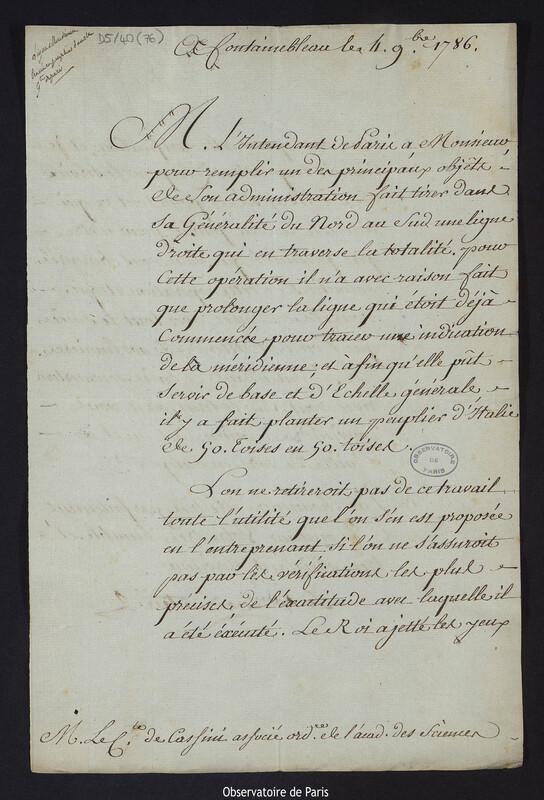 D5/40 (76)
A Fontainebleau le 4 9.bre 1786.
M. L'Intendant de Paris a Monsieur
pour remplir un des principaux objets
de son administration fait tirer dans
sa Généralité du Nord au Sud une ligne
droite qui en traverse la totalité. pour
cette opération il n'a avec raison fait
que prolonger la ligne qui étoit déjà
commencée pour tracer une indication
de la méridienne; et àfin qu'elle pût
servir de base et d'Echelle générale
il y a fait planter un peuplier d'Italie
de 50. Toises en 50. toises.
OBSERVATOIRE
DE
PARIS
L'on ne retireroit pas de ce travail
toute l'utilité que l'on s'en est proposée
en l'entreprenant si l'on ne s'assuroit
pas par les vérifications les plus
précises de l'éxactitude avec laquelle il
a été éxécuté. Le Roi a jetté les yeux
M. Le C.te de Cassini associé ord.re de l'acad. des Sciences
Observatoire de Paris